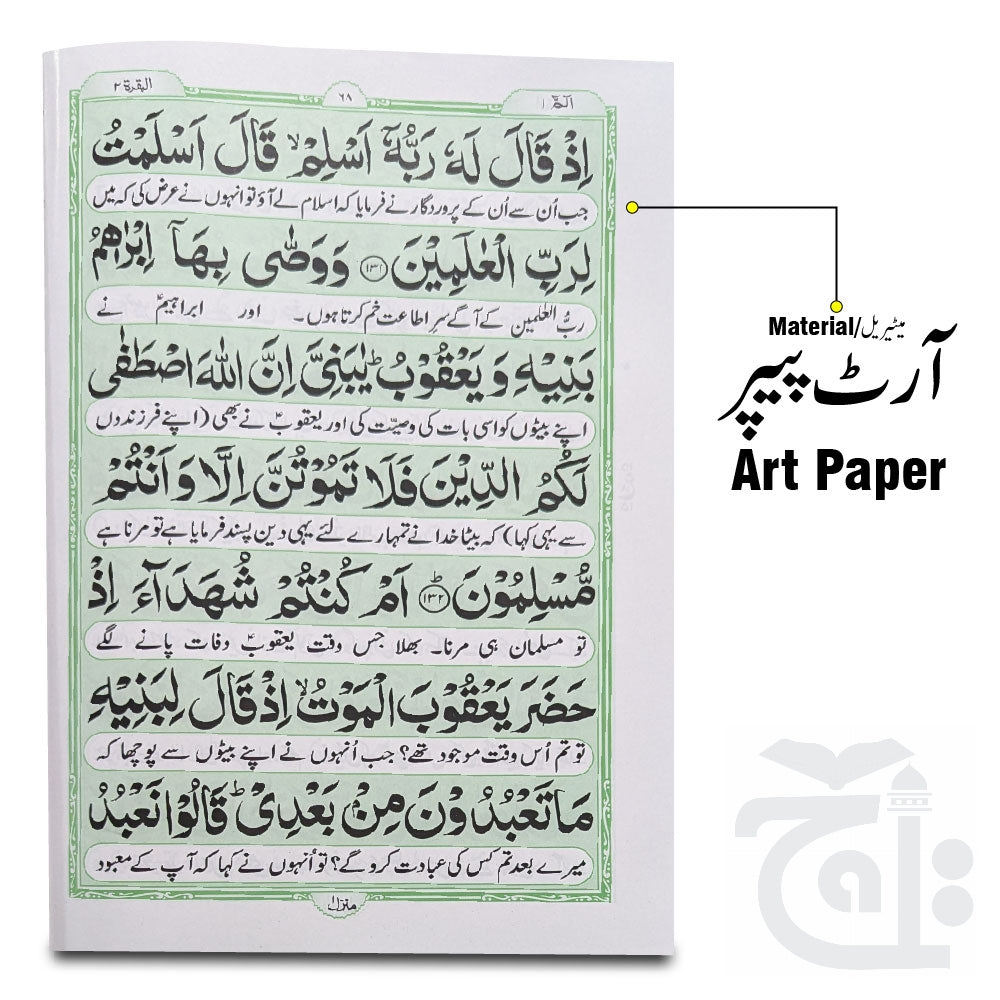 الٓمّٓ ۱
٦٨
البقرة ٢
اِذْ قَالَ لَهٗ رَبُّهٗۤ اَسْلِمْ ۙ قَالَ اَسْلَمْتُ
جب اُن سے اُن کے پروردگار نے فرمایا کہ اسلام لے آؤ تو انہوں نے عرض کی کہ میں
لِرَبِّ الْعٰلَمِیْنَ ﴿۱۳۱﴾ وَوَصّٰی بِهَاۤ اِبْرٰهٖمُ
ربُّ العٰلمین کے آگے سرِ اطاعت خم کرتا ہوں۔ اور ابراہیمؑ نے
بَنِیْهِ وَ یَعْقُوْبُ ؕ یٰبَنِیَّ اِنَّ اللّٰهَ اصْطَفٰی
اپنے بیٹوں کو اسی بات کی وصیّت کی اور یعقوبؑ نے بھی (اپنے فرزندوں
لَكُمُ الدِّیْنَ فَلَا تَمُوْتُنَّ اِلَّا وَ اَنْتُمْ
سے یہی کہا) کہ بیٹا خدا نے تمہارے لئے یہی دین پسند فرمایا ہے تو مرنا ہے
مُّسْلِمُوْنَ ﴿۱۳۲﴾ ؕ اَمْ كُنْتُمْ شُهَدَآءَ اِذْ
تو مسلمان ہی مرنا۔ بھلا جس وقت یعقوبؑ وفات پانے لگے
حَضَرَ یَعْقُوْبَ الْمَوْتُ ۙ اِذْ قَالَ لِبَنِیْهِ
تو تم اُس وقت موجود تھے؟ جب اُنہوں نے اپنے بیٹوں سے پوچھا کہ
مَا تَعْبُدُوْنَ مِنْۢ بَعْدِیْ ؕ قَالُوْا نَعْبُدُ
میرے بعد تم کس کی عبادت کرو گے؟ تو اُنہوں نے کہا کہ آپ کے معبود
منزل ۱
Material/میٹیریل
آرٹ پیپر
Art Paper